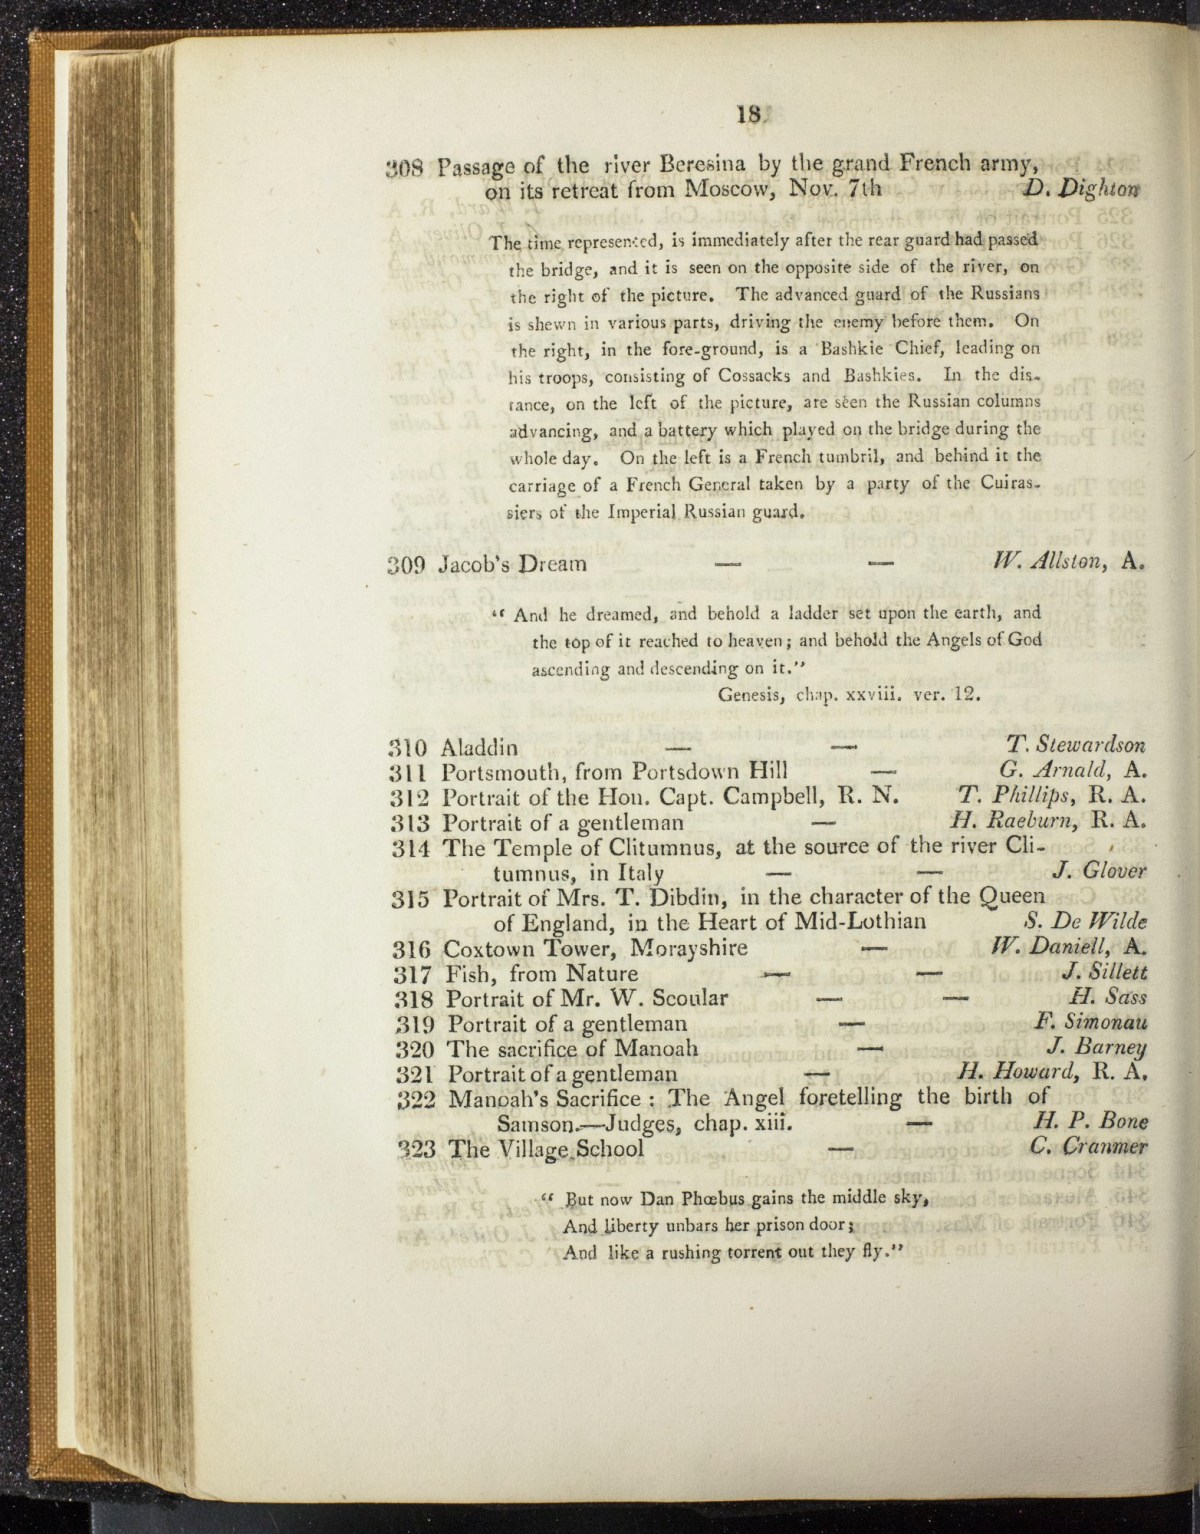 18
308 Passage of the river Beresina by the grand French army,
on its retreat from Moscow, Nov. 7th D. Dighton
The time represented, is immediately after the rear guard had passed
the bridge, and it is seen on the opposite side of the river, on
the right of the picture. The advanced guard of the Russians
is shewn in various parts, driving the enemy before them. On
the right, in the fore-ground, is a Bashkie Chief, leading on
his troops, consisting of Cossacks and Bashkies. In the dis-
tance, on the left of the picture, are seen the Russian columns
advancing, and a battery which played on the bridge during the
whole day. On the left is a French tumbril, and behind it the
carriage of a French General taken by a party of the Cuiras-
siers of the Imperial Russian guard.
309 Jacob's Dream — — W. Allston, A.
“ And he dreamed, and behold a ladder set upon the earth, and
the top of it reached to heaven; and behold the Angels of God
ascending and descending on it.”
Genesis, chap. xxviii. ver. 12.
310 Aladdin — — T. Stewardson
311 Portsmouth, from Portsdown Hill — G. Arnald, A.
312 Portrait of the Hon. Capt. Campbell, R. N. T. Phillips, R. A.
313 Portrait of a gentleman — H. Raeburn, R. A.
314 The Temple of Clitumnus, at the source of the river Cli-
tumnus, in Italy — — J. Glover
315 Portrait of Mrs. T. Dibdin, in the character of the Queen
of England, in the Heart of Mid-Lothian S. De Wilde
316 Coxtown Tower, Morayshire — W. Daniell, A.
317 Fish, from Nature — — J. Sillett
318 Portrait of Mr. W. Scoular — — H. Sass
319 Portrait of a gentleman — F. Simonau
320 The sacrifice of Manoah — J. Barney
321 Portrait of a gentleman — H. Howard, R. A.
322 Manoah's Sacrifice : The Angel foretelling the birth of
Samson.—Judges, chap. xiii. — H. P. Bone
323 The Village School — C. Cranmer
“ But now Dan Phœbus gains the middle sky,
And liberty unbars her prison door;
And like a rushing torrent out they fly.”